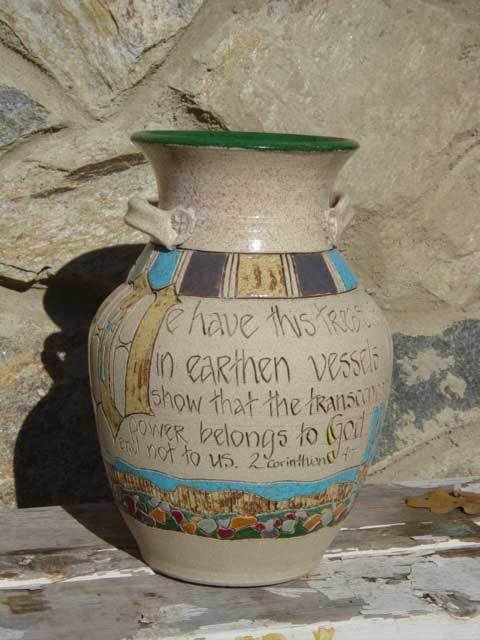 We have this treas
in earthen vessels
show that the transcen
power belongs to God
and not to us. 2 Corinthian 4